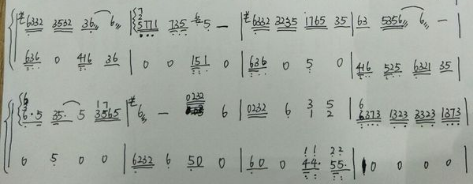 6332 3532 36 6 | 5771 735 65 — | 6332 3235 1765 35 | 63 5356 6 — |
636 0 416 36 | 0 0 151 0 | 636 0 5 0 | 416 525 6321 35
6·5 35· 5 3565 | 6 — 0232 6 | 0232 6 3 5 | 6373 1323 3323 1373
0 5 0 0 | 6232 6 50 0 | 60 0 44· 55· | 0 0 0 0